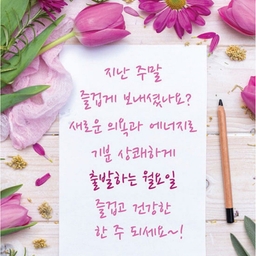 지난 주말
즐겁게 보내셨나요?
새로운 의욕과 에너지로
기분 상쾌하게
출발하는 월요일
즐겁고 건강한
한 주 되세요~!